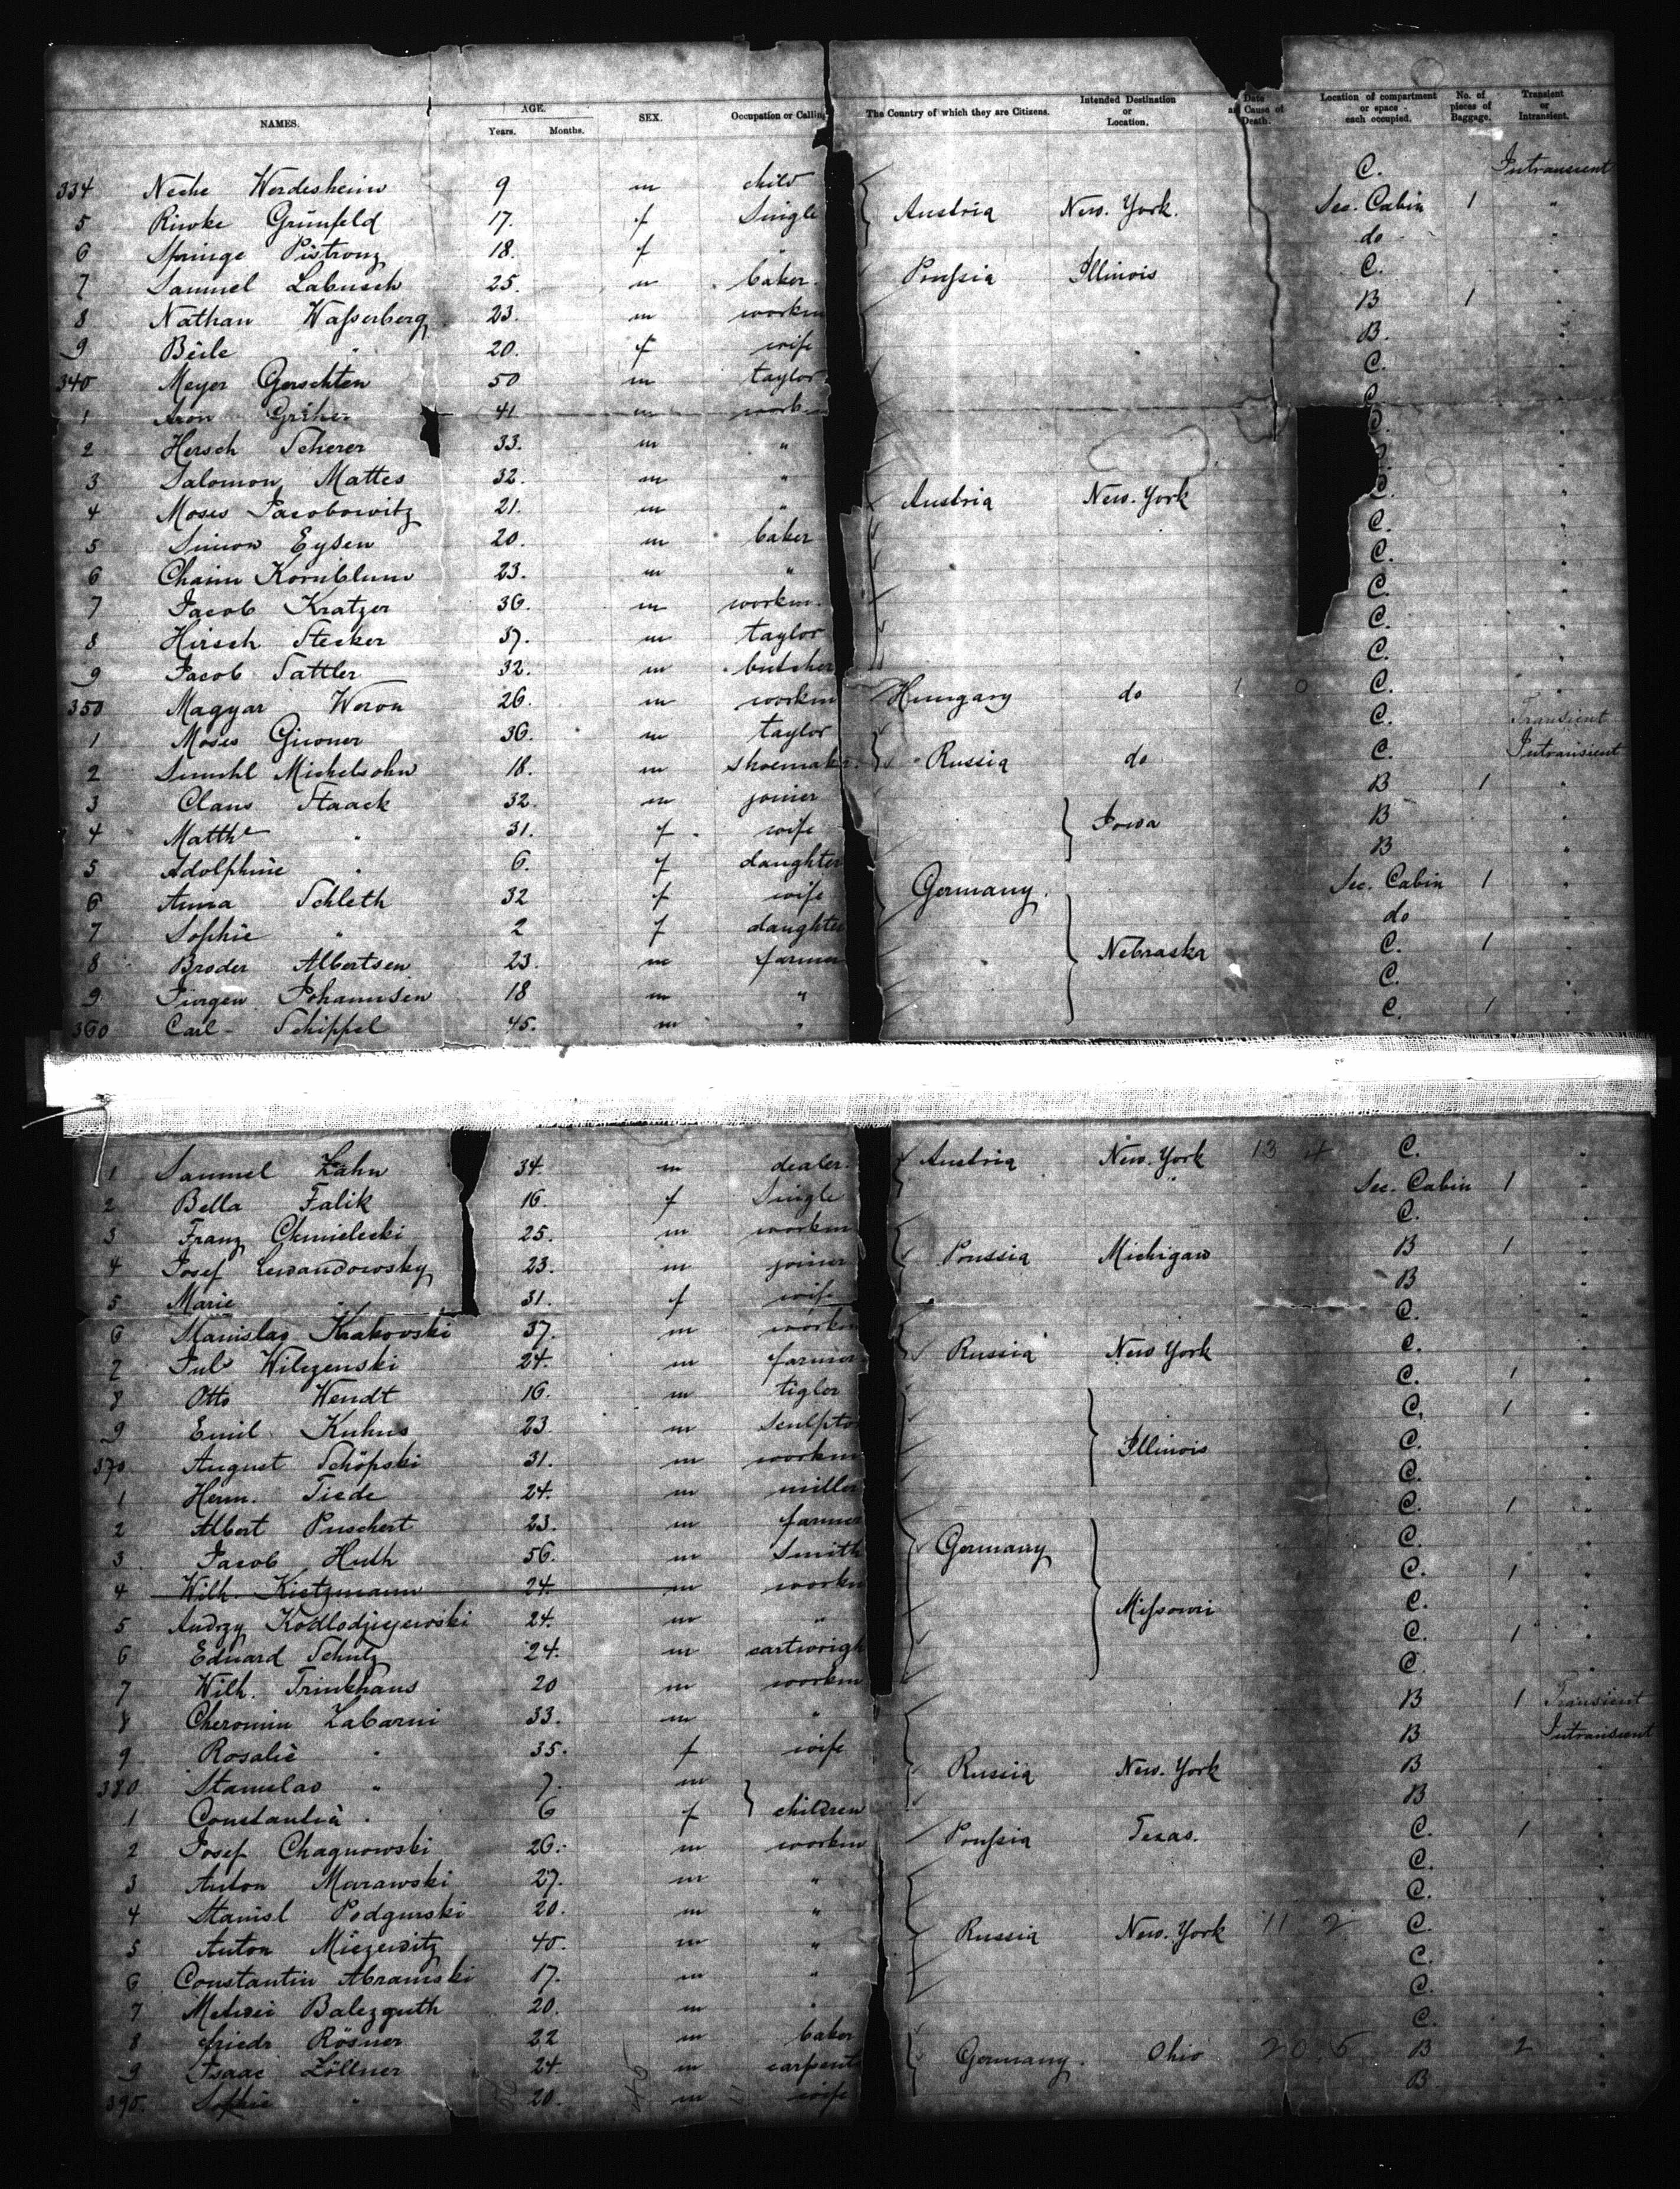 NAMES. AGE. Years. Months. SEX. Occupation or Calling The Country of which they are Citizens. Intended Destination or Location. Date and Cause of Death. Location of compartment or space each occupied. No. of pieces of Baggage. Transient or Intransient.
334 Neche Werdesheim 9 m child C. Intransient
5 Riwke Grünfeld 17. f Single Austria New. York. Sec. Cabin 1 "
6 Springe Pistrong 18. f " do "
7 Samuel Labusch 25. m baker. Prussia Illinois C. "
8 Nathan Wasserberg 23. m workm B 1 "
9 Beile " 20. f wife B. "
340 Meyer Gerschten 50 m taylor C. "
1 Aron 41. m work C
2 Hersch Scherer 33. m " C. "
3 Salomon Mattes 32. m "
4 Moses Jacobowitz 21. m " Austria New. York C. "
5 Simon Eysen 20. m baker C. "
6 Chaim Kornblum 23. m " C. "
7 Jacob Kratzer 36. m workm. C. "
8 Hirsch Stecker 37. m taylor C. "
9 Jacob Sattler 32. m butcher C. "
350 Magyar Woron 26. m workm Hungary do 1 0 C. "
1 Moses Giwoner 36. m taylor C. Transient
2 Simchl Michelsohn 18. m shoemak. Russia do C. Intransient
3 Claus Staack 32. m joiner B 1 "
4 Matthe " 31. f wife Iowa B "
5 Adolphine " 6. f daughter B "
6 Anna Schleth 32 f wife Germany. Sec. Cabin 1 "
7 Sophie " 2 f daughter do "
8 Broder Albertsen 23. m farmer Nebraska C. 1 "
9 Jürgen Johannsen 18 m " C. "
360 Carl Schippel 45. m " C. 1 "
1 Samuel Zahn 34. m dealer. Austria New. York 13 4 C. "
2 Bella Falik 16. f Single Sec. Cabin 1 "
3 Franz Chmielecki 25. m workm C. "
4 Josef Lewandowsky 23. m joiner Prussia Michigan B 1 "
5 Marie " 31. f wife B "
6 Stanislao Krakovski 37. m workm C. "
7 Jul Wilczenski 24. m farmer Russia New York C. "
8 Otto Wendt 16. m tigler C. 1 "
9 Emil Kuhns 23. m sculpto C. 1 "
370 August Schöpski 31. m workm Illinois C. "
1 Herm. Tiede 24. m miller C. "
2 Albert Puschert 23. m farmer C. 1 "
3 Jacob Huth 56. m Smith Germany C. "
4 Wilh. Kietzmann 24. m workm C. 1 "
5 Andrzy Kodlodziejewski 24. m " Missouri C. "
6 Eduard Schutz 24. m cartwrigh C. 1 "
7 Wilh. Trinkhaus 20 m workm C. "
8 Cheromin Zabarni 33. m " B 1 Transient
9 Rosalie " 35. f wife B Intransient
380 Stanislao " 7. m Russia New. York B
1 Constantia " 6 f children B "
2 Josef Chagnowski 26. m workm Prussia Texas. C. 1 "
3 Anton Marawski 27. m " C. "
4 Stanisl Podgurski 20. m " C. "
5 Anton Miezewitz 40. m " Russia New. York 11 2 C. "
6 Constantin Abramski 17. m " C. "
7 Balezguth 20. m " C. "
8 Friedr Rösner 22 m baker C. "
9 Isaac Zöllner 24 m carpent Germany. Ohio 20 5 B 2 "
390. Sophie " 20. m wife B "